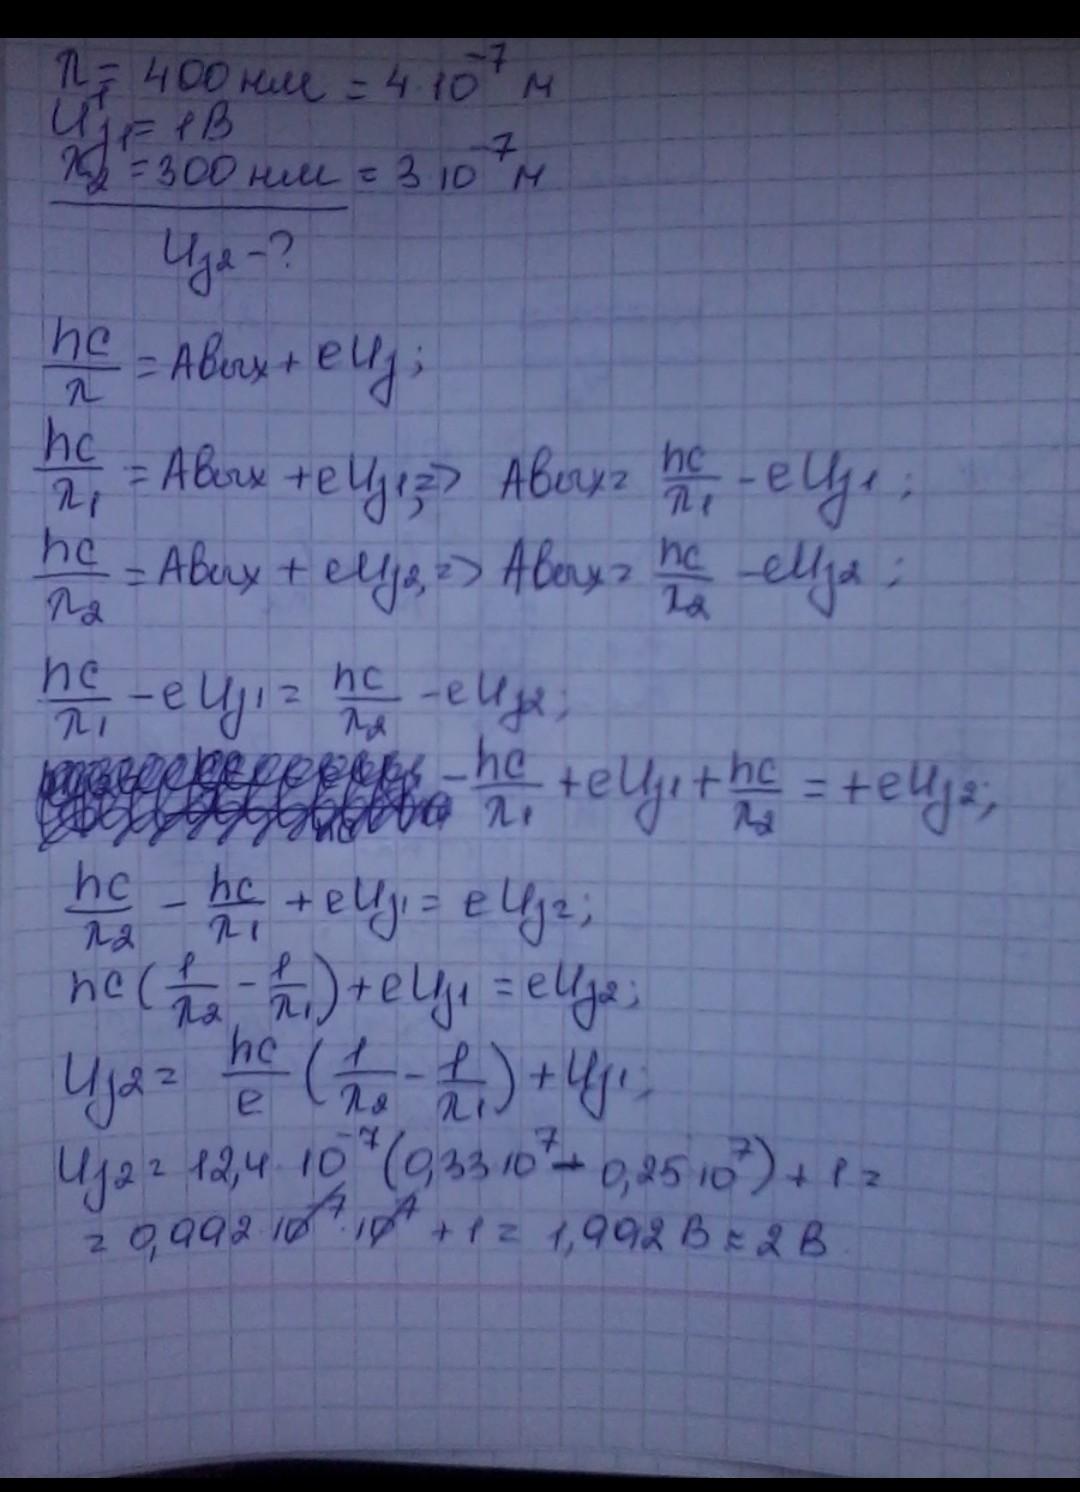 λ₁ = 400 нм = 4·10⁻⁷ м
Uз₁ = 1В
λ₂ = 300 нм = 3·10⁻⁷ м
Uз₂ - ?
hc/λ = Aвых + eUз;
hc/λ₁ = Aвых + eUз₁; => Aвых = hc/λ₁ - eUз₁;
hc/λ₂ = Aвых + eUз₂, => Aвых = hc/λ₂ - eUз₂;
hc/λ₁ - eUз₁ = hc/λ₂ - eUз₂;
- hc/λ₁ + eUз₁ + hc/λ₂ = + eUз₂;
hc/λ₂ - hc/λ₁ + eUз₁ = eUз₂;
hc(1/λ₂ - 1/λ₁) + eUз₁ = eUз₂;
Uз₂ = hc/e (1/λ₂ - 1/λ₁) + Uз₁;
Uз₂ = 12,4·10⁻⁷(0,33·10⁷ - 0,25·10⁷) + 1 =
= 0,992·10⁻⁷·10⁷ + 1 = 1,992 В ≈ 2 В